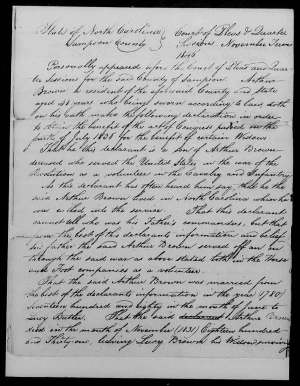 State of North Carolina } Court of Pleas and Quarter
Sampson County } Sessions November Term
1846
Personally appeared before the Court of Pleas and Quar
ter Sessions for the said County of Sampson Arthur
Brown a resident of the aforesaid County and State
aged 51 years who being sworn according to law doth
on his oath make the following declaration in order
to obtain the benefit of the act of Congress passed in the
of July 1838 for the benefit of certain widows
That he this declarant is a son of Arthur Brown
deceased who served the United States in the war of the
Revolution as a volunteer in the Cavalry and Infantry
As this declarant has often heard him say, that he the
said Arthur Brown lived in North Carolina when he
was called into the service That this declarant
cannot tell who was his Father's commanders, but that
from the best of this declarants information and belief
his father the said Arthur Brown served off and on
through the said war as above stated both in the Horse
and Foot companies as a volunteer.
That the said Arthur Brown was married from
the best of the declarants information in the year (1780)
seventeen hundred and eighty in the month of June to
Lucy Butler. That the said declarant Arthur Brown
died in the month of November (1831) Eighteen hundred
and Thirty-one, leaving Lucy Brown his Widow